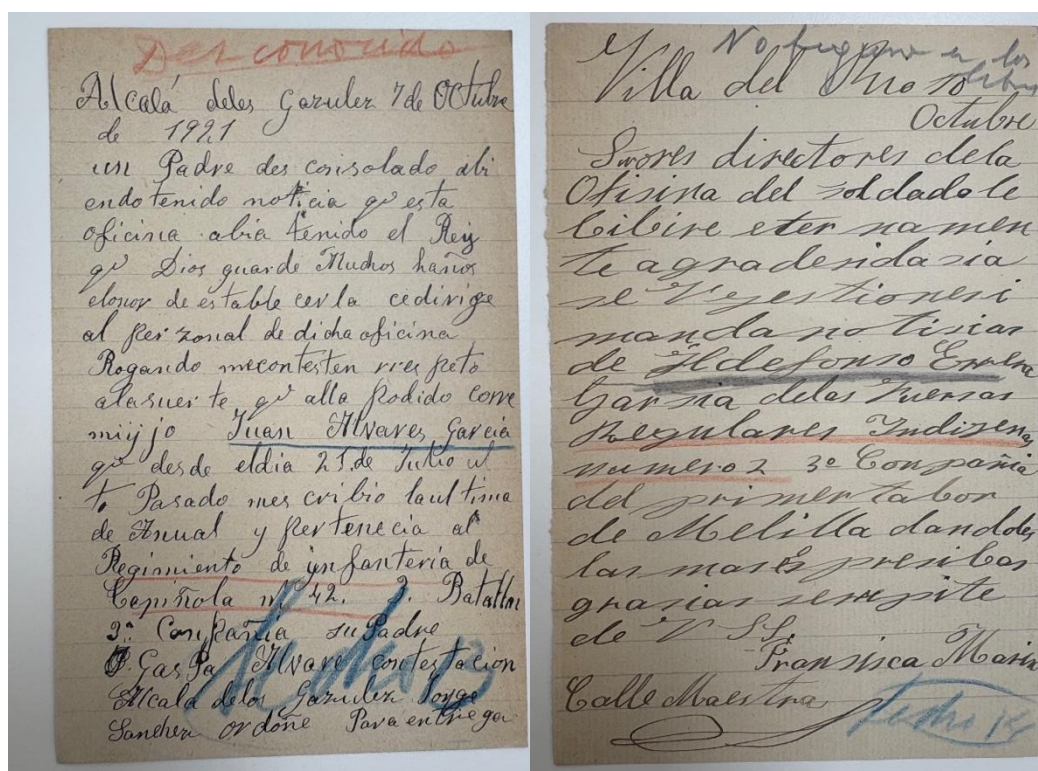 Desconocido
Alcalá delos Gazulez 7 de Octubre
de 1921
un Padre des consolado abi
endo tenido noticia qe esta
oficina abia tenido el Rey
qe Dios guarde Muchos haños
elonor de estable cerla cedirige
al per zonal de dicha oficina
Rogando mecontesten rres peto
alasuer te qe alla podido corre
miyjo Juan Alvares Garcia
qe des de eldia 21 de Julio ul
to Pasado mes cribio laul tima
de Anual y per tenecia al
Regimiento de ynfanteria de
Ceriñola nº 42. 3. Batallon
3ª Compañia su Padre
Gaspa Alvare contestacion
Alcala delos Gazulez Jorge
Sanchez ordoñe Para entrega
No figura en los
libros
Villa del 10
Octubre
Sores directores dela
Ofisina del soldado le
bibire eter namen
te agradesida sia
se gestionesi
manda no tisias
de Yldefonso Errera
Garsia delas Fuersas
Regulares Yndizenas
numero 2 3ª Compañia
del primer tabor
de Melilla dandoles
las mas espresibas
grasias serepite
de V SS.
Fransisca Marin
Calle Maestra